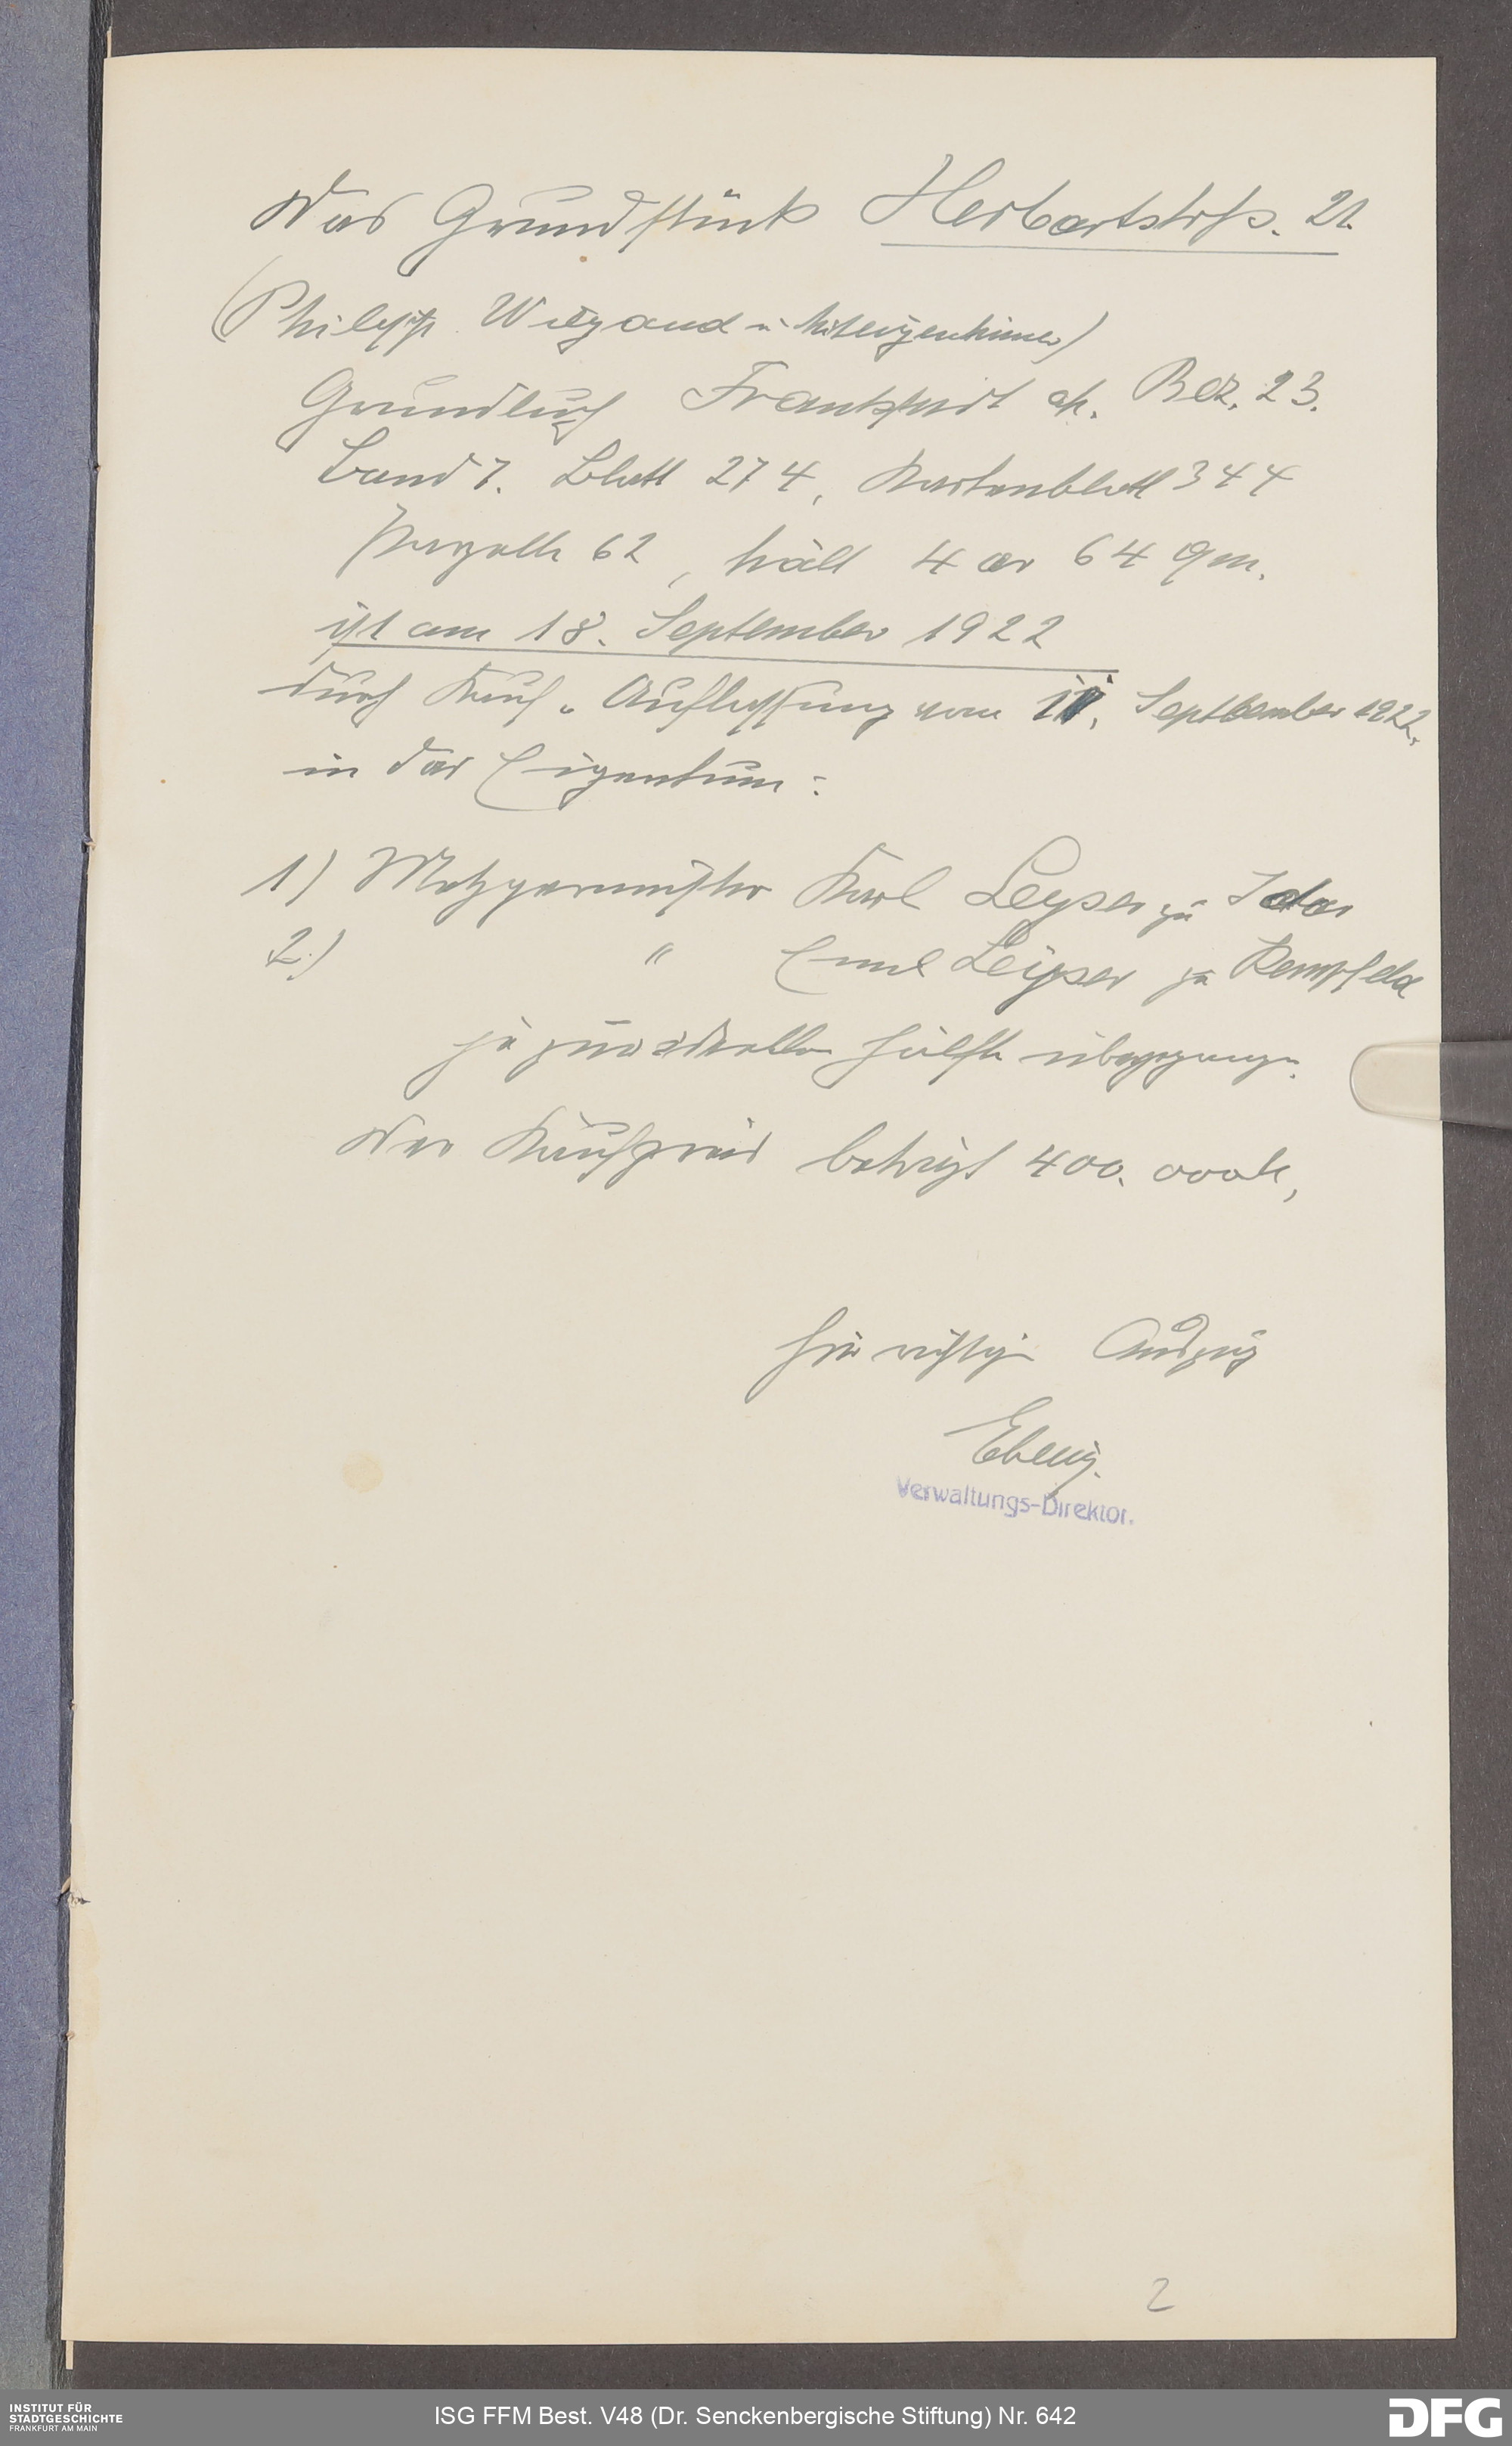 Das Grundstück Herbartstrs. 21.
(Philipp Wiegand u. Miteigentümer)
Grundbuch Frankfurt a/M. Bez. 23.
Band 7. Blatt 274, Kartenblatt 344
Parzelle 62, hält 4 ar 64 qm.
ist am 18. September 1922
durch Kauf u. Auflassung vom 11. September 1922.
in das Eigentum:
1) Metzgermeister Karl Leyser zu Idar
2.) " Emil Leyser zu Kempfeld
je zur ideellen Hälfte übergegangen.
Der Kaufpreis beträgt 400.000 M,
Für richtigen Auszug
Verwaltungs-Direktor.
2
INSTITUT FÜR
STADTGESCHICHTE
FRANKFURT AM MAIN
ISG FFM Best. V48 (Dr. Senckenbergische Stiftung) Nr. 642
DFG